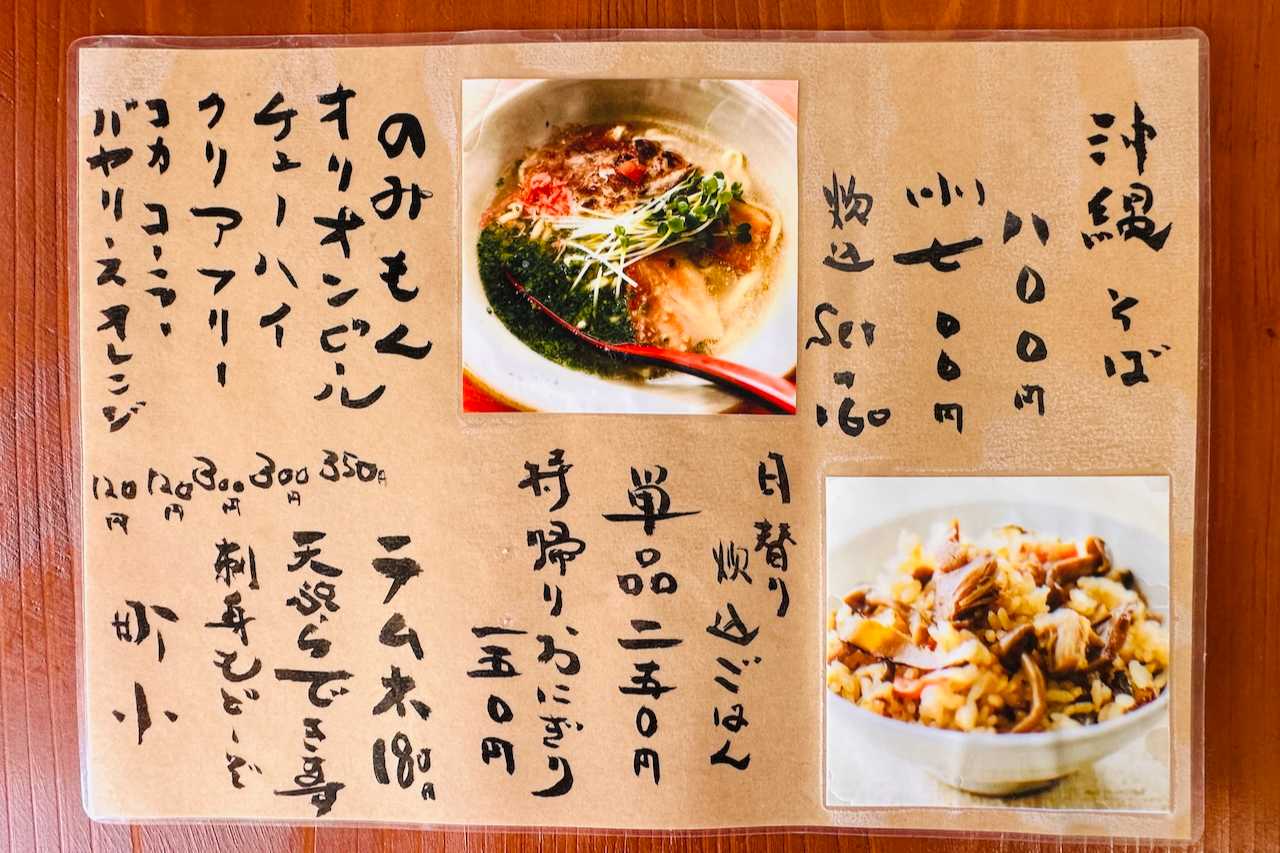 沖縄そば
八〇〇円
小 七〇〇円
炊込 Set 160
日替り
炊込ごはん
単品二五〇円
持帰りおにぎり
一五〇円
のみもん
オリオンビール 350円
チューハイ 300円
クリアフリー 300円
コカコーラー 120円
バヤリースオレンジ 120円
ラムネ 180円
天ぷらでき寿
刺身もど〜ぞ